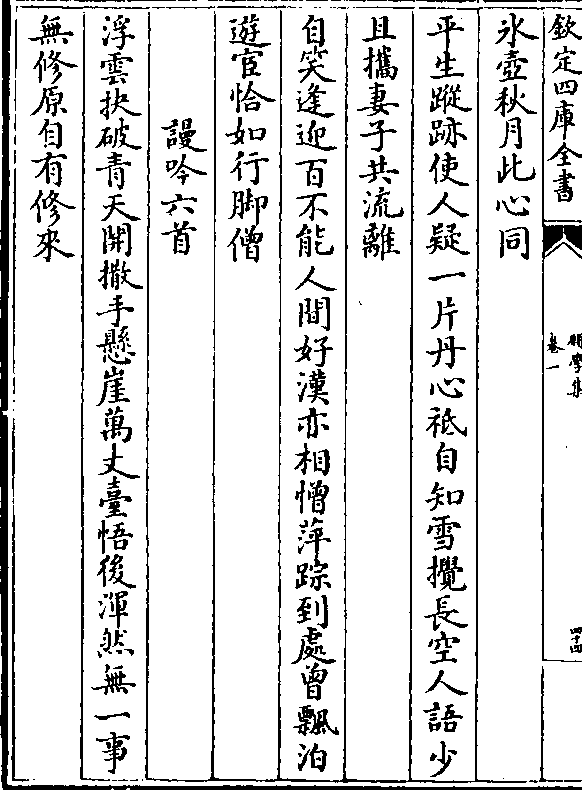 欽定四庫全書
卷一
四十四
氷壺秋月此心同
平生蹤跡使人疑一片丹心祗自知雪攪長空人語少
且攜妻子共流離
自笑逢迎百不能人間好漢亦相憎萍踪到處曾飄泊
遊宦恰如行脚僧
謾吟六首
浮雲抉破青天開撒手懸崖萬丈臺悟後渾然無一事
無修原自有修來